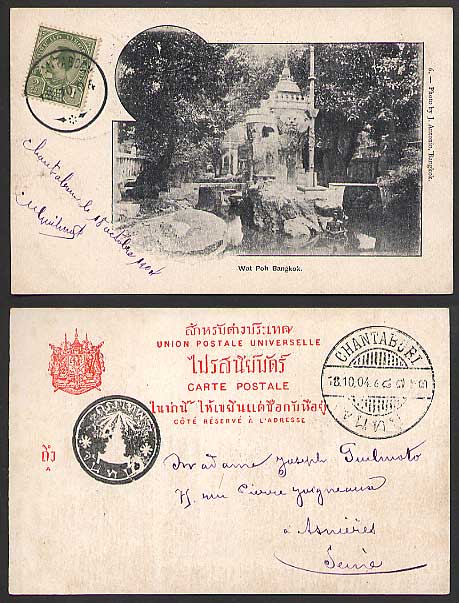 6. — Photo by J. Antonio, Bangkok.
Chantaboun le 18 octobre 1904
Wat Poh Bangkok.
สำหรับต่างประเทศ
UNION POSTALE UNIVERSELLE
ไปรสนียบัตร์
CARTE POSTALE
ในน่านี้ ให้เขียนแต่ชื่อกับที่อยู่
CÔTÉ RÉSERVÉ À L'ADRESSE
CHANTABURI
18.10.04.
SIAM
ถึง
A
Madame Joseph Guilmoto
75, rue Pierre Joigneaux
à Asnières
Seine